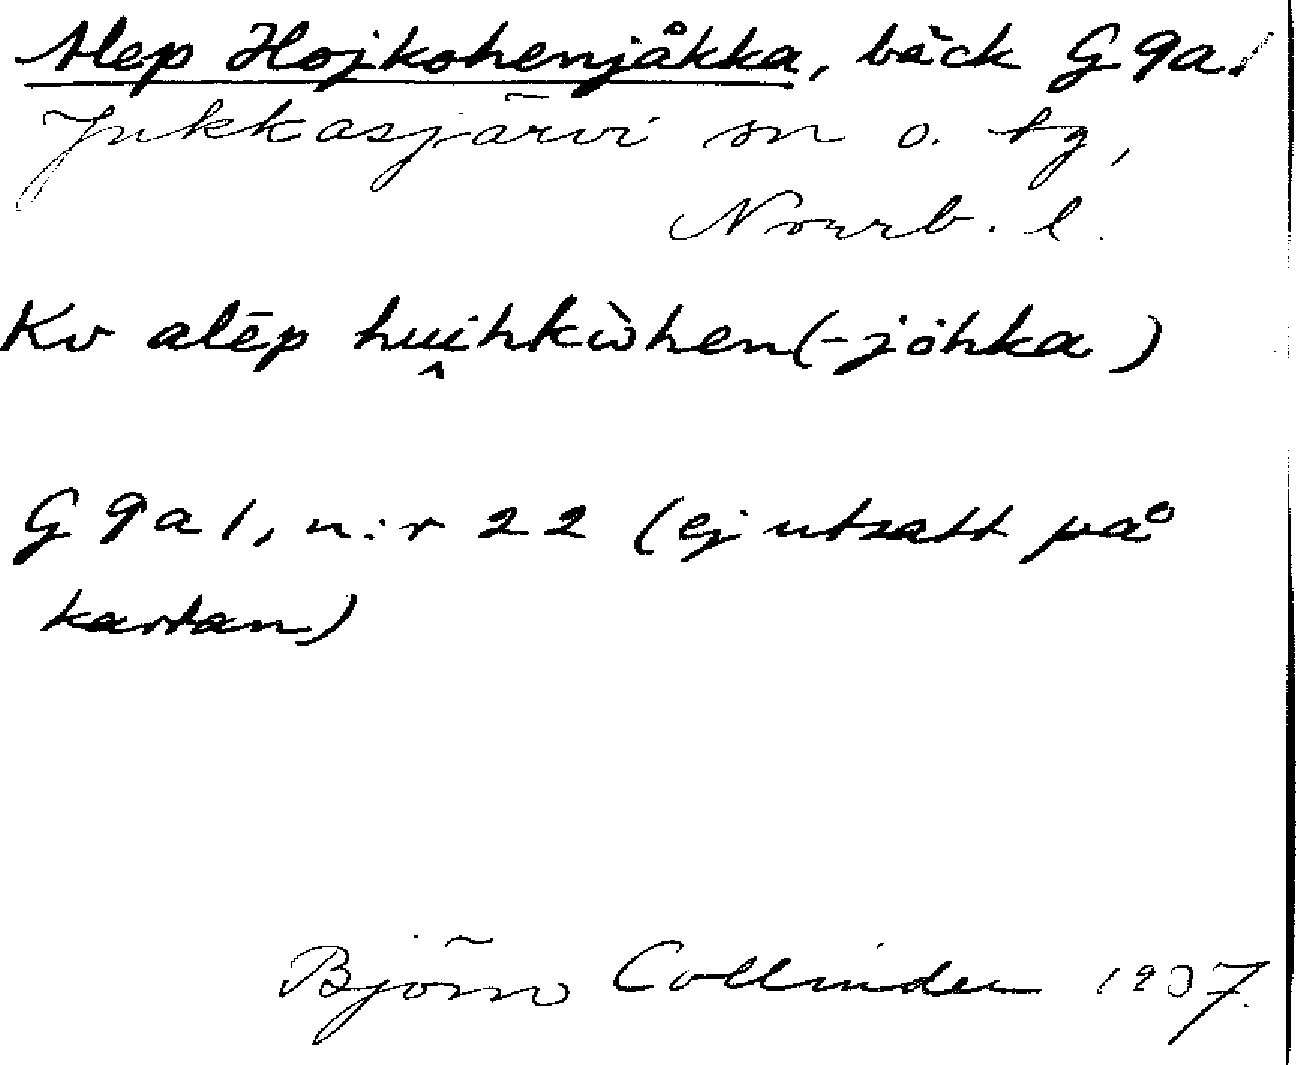 Alep Hojkohenjåkka, bäck G9a1
Jukkasjärvi sn o. tg,
Norrb. l.
Kv alēp hṷihkòhen(-jöhka)
G9a1, n:r 22 (ej utsatt på
kartan)
Björn Collinder 1937.